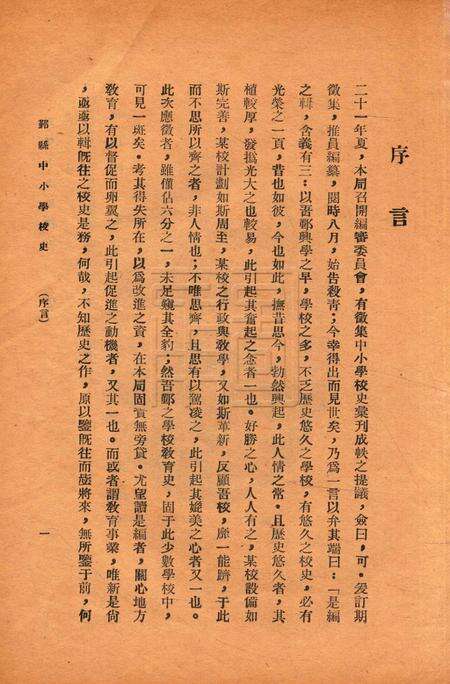 序言
二十一年夏，本局召開編審委員會，有徵集中小學校史彙刊成帙之提議，僉曰，可。爰訂期
徵集，推員編纂，閱時八月，始告殺青；今幸得出而見世矣，乃爲一言以弁其端曰：「是編
之輯，含義有三：以吾鄞興學之早，學校之多，不乏歷史悠久之學校，有悠久之校史，必有
光榮之一頁，昔也如彼，今也如此，撫昔思今，勃然興起，此人情之常。且歷史悠久者，其
植較厚，發撝光大之也較易，此引起其奮起之念者一也。好勝之心，人人有之，某校設備如
斯完善，某校計劃如斯周至，某校之行政與教學，又如斯革新，反顧吾校，靡一能躋，于此
而不思所以齊之者，非人情也；不唯思齊，且思有以駕凌之，此引起其媲美之心者又一也。
此次應徵者，雖僅佔六分之一，未足窺其全豹，然吾鄞之學校教育史，固于此少數學校中，
可見一斑矣。考其得失所在，以爲改進之資，在本局固責無旁貸。尤望讀是編者，關心地方
教育，有以督促而卵翼之，此引起促進之動機者，又其一也。而或者謂教育事業，唯新是尙
，亟亟以輯旣往之校史是務，何哉，不知歷史之作，原以鑒旣往而毖將來，無所鑒于前，何
鄞縣中小學校史 （序言） 一